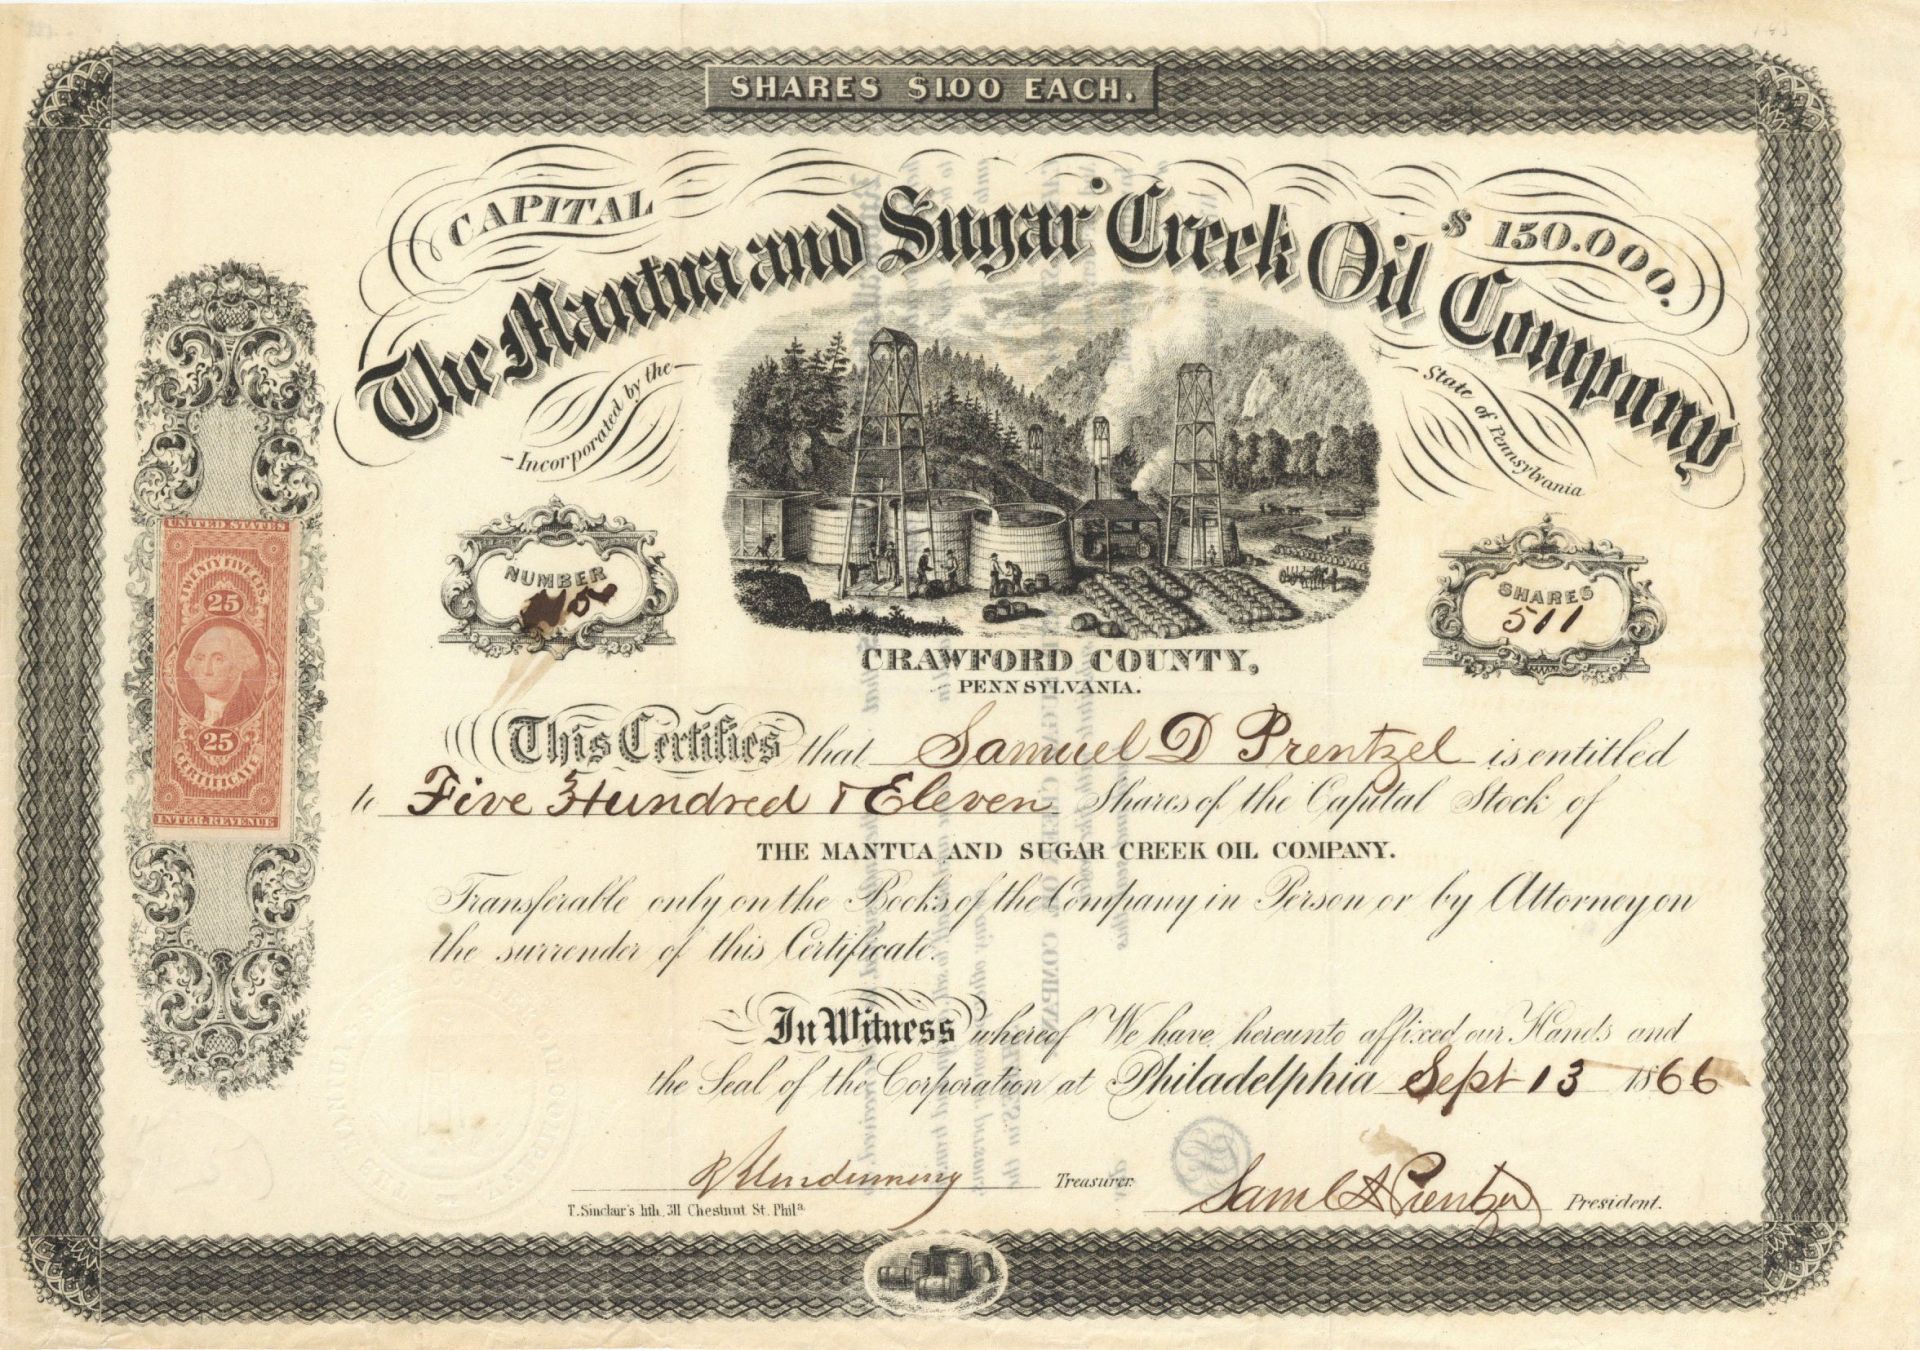 SHARES $1.00 EACH.
CAPITAL $150.000.
The Mantua and Sugar Creek Oil Company
Incorporated by the State of Pennsylvania
NUMBER
SHARES
511
UNITED STATES
TWENTY FIVE CTS.
25
25
CERTIFICATE
INTER. REVENUE
CRAWFORD COUNTY,
PENNSYLVANIA.
This Certifies that Samuel D Prentzel is entitled
to Five Hundred & Eleven Shares of the Capital Stock of
THE MANTUA AND SUGAR CREEK OIL COMPANY.
Transferable only on the Books of the Company in Person or by Attorney on
the surrender of this Certificate.
In Witness whereof We have hereunto affixed our Hands and
the Seal of the Corporation at Philadelphia Sept 13 1866
Treasurer.
President.
T. Sinclair's lith, 311 Chestnut St. Phila.